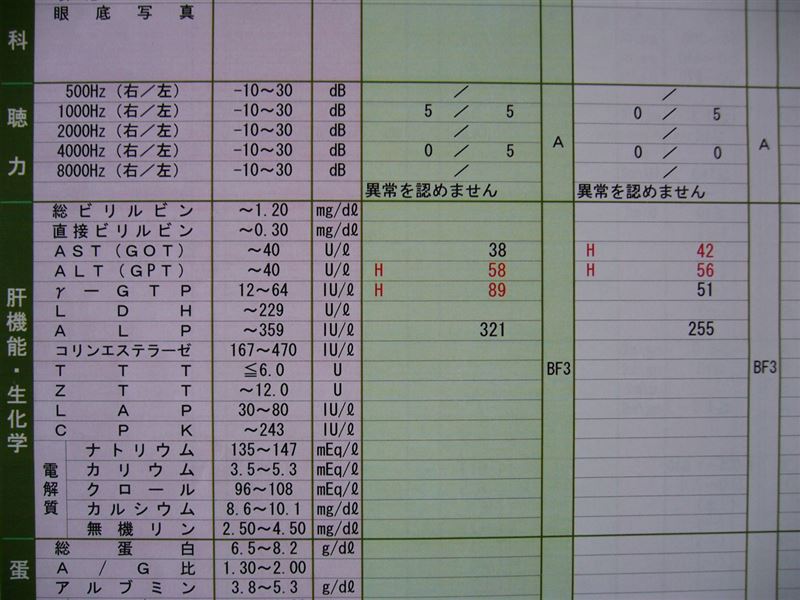 眼底写真
科
500Hz(右/左) -10~30 dB /  /
1000Hz(右/左) -10~30 dB 5 / 5 0 / 5
聴 2000Hz(右/左) -10~30 dB /  / A A
力 4000Hz(右/左) -10~30 dB 0 / 5 0 / 0
8000Hz(右/左) -10~30 dB /  /
異常を認めません 異常を認めません
肝機能・生化学
総ビリルビン ~1.20 mg/dℓ
直接ビリルビン ~0.30 mg/dℓ
AST(GOT) ~40 U/ℓ 38 H 42
ALT(GPT) ~40 U/ℓ H 58 H 56
γ-GTP 12~64 IU/ℓ H 89 51
LDH ~229 U/ℓ
ALP ~359 IU/ℓ 321 255
コリンエステラーゼ 167~470 IU/ℓ
TTT ≦6.0 U BF3 BF3
ZTT ~12.0 U
LAP 30~80 IU/ℓ
CPK ~243 IU/ℓ
電解質
ナトリウム 135~147 mEq/ℓ
カリウム 3.5~5.3 mEq/ℓ
クロール 96~108 mEq/ℓ
カルシウム 8.6~10.1 mg/dℓ
無機リン 2.50~4.50 mg/dℓ
蛋
総蛋白 6.5~8.2 g/dℓ
A/G比 1.30~2.00
アルブミン 3.8~5.3 g/dℓ